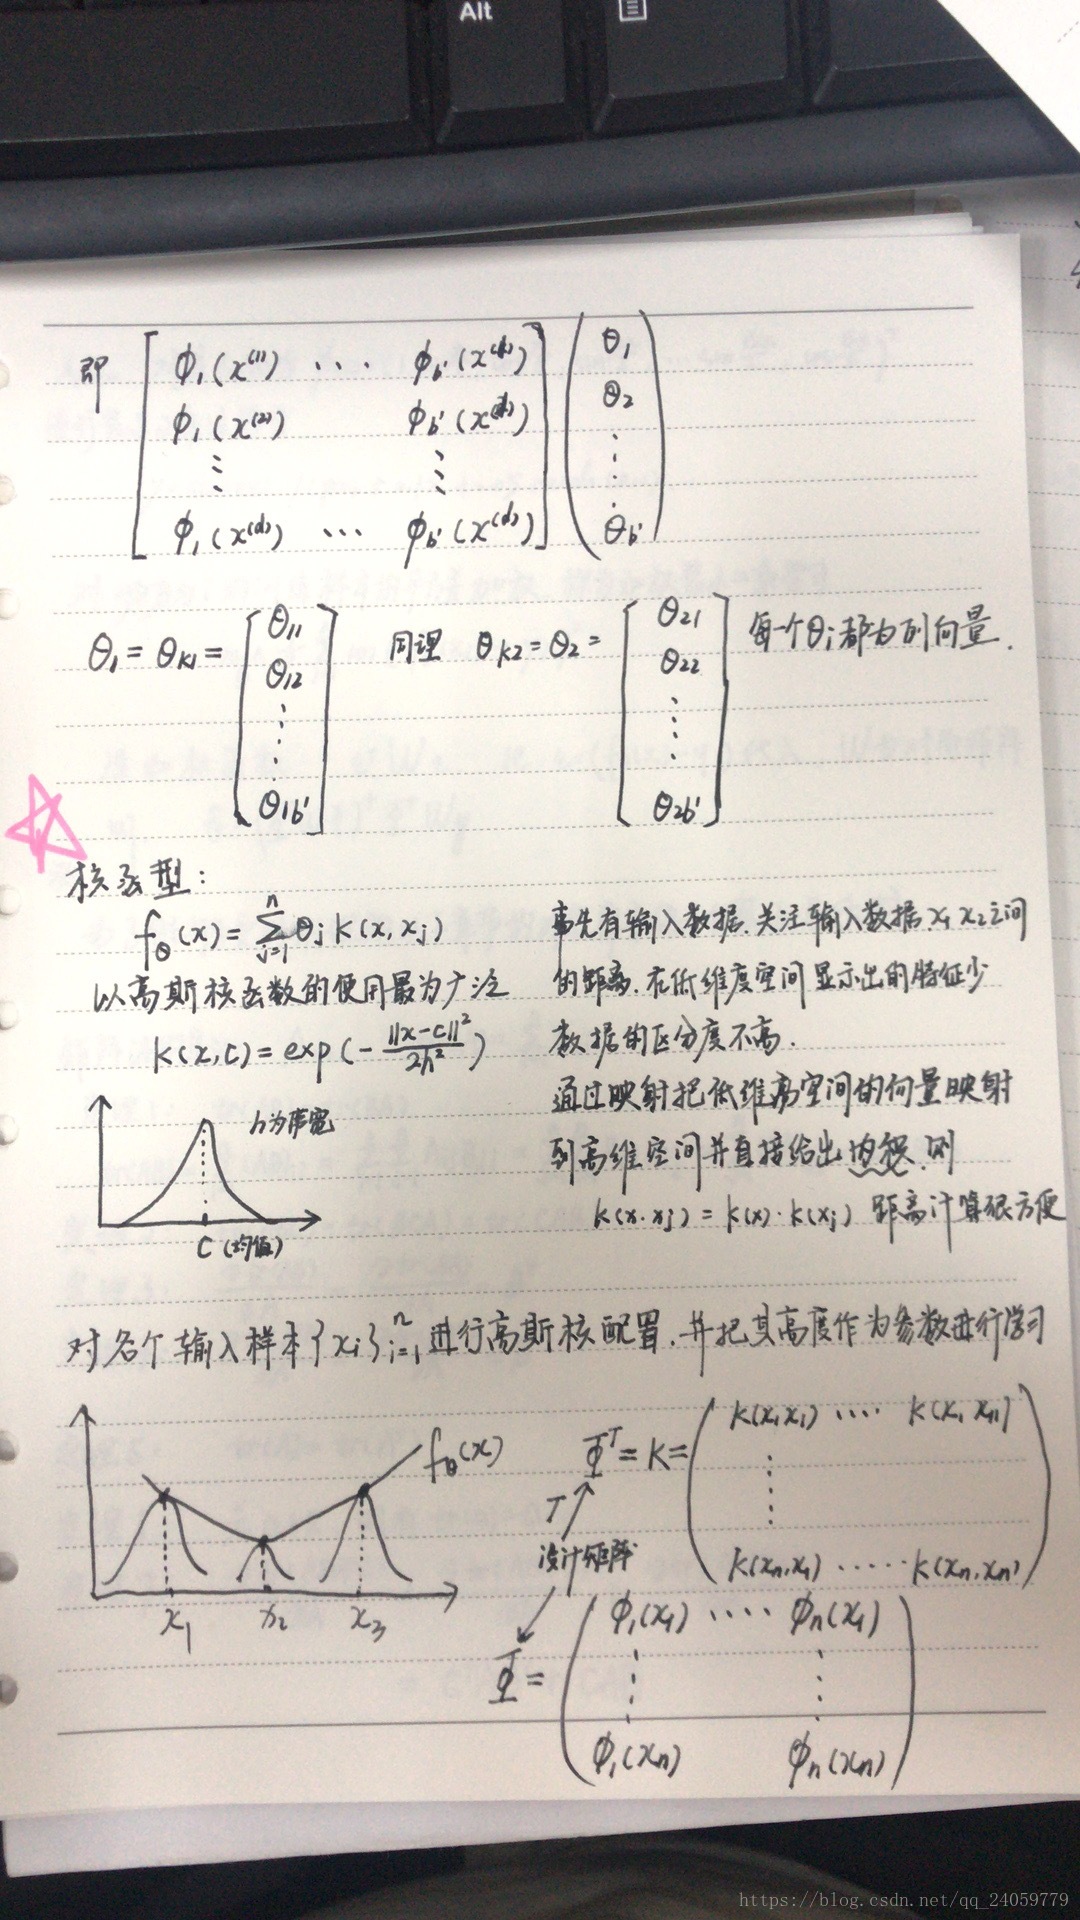 Alt
即 [ φ₁(x⁽¹⁾) ··· φb'(x⁽ ⁾) ] ( θ₁
φ₁(x⁽²⁾) φb'(x⁽ ⁾) θ₂
⋮ ⋮ ⋮
φ₁(x⁽ᵈ⁾) ··· φb'(x⁽ᵈ⁾) θb' )
θ₁ = θk1 = [ θ11 θ12 ⋮ θ1b' ] 同理 θk2 = θ2 = [ θ21 θ22 ⋮ θ2b' ] 每一个θi都为列向量.
核函型:
fθ(x) = Σⁿj=1 θj K(x, xj)
以高斯核函数的使用最为广泛
K(x, c) = exp(-‖x-c‖²/2h²)
h为带宽
C (均值)
事先有输入数据.关注输入数据x₁ x₂之间
的距离.在低维度空间显示出的特征少
数据的区分度不高.
通过映射把低维离空间的向量映射
到高维空间并直接给出内积.则
k(x·xj) = k(x)·k(xj) 距离计算很方便
对各个输入样本{xi}ⁿi=1进行高斯核配置.并把其高度作为参数进行学习
fθ(x)
x₁ x₂ x₃
Φᵀ = K = ( k(x₁x₁) ···· k(x₁ xn)
⋮
k(xn,x₁) ······ k(xn,xn) )
T
设计矩阵
Φ = ( φ₁(x₁) ···· φn(x₁)
⋮ ⋮
φ₁(xn) φn(xn) )
https://blog.csdn.net/qq_24059779